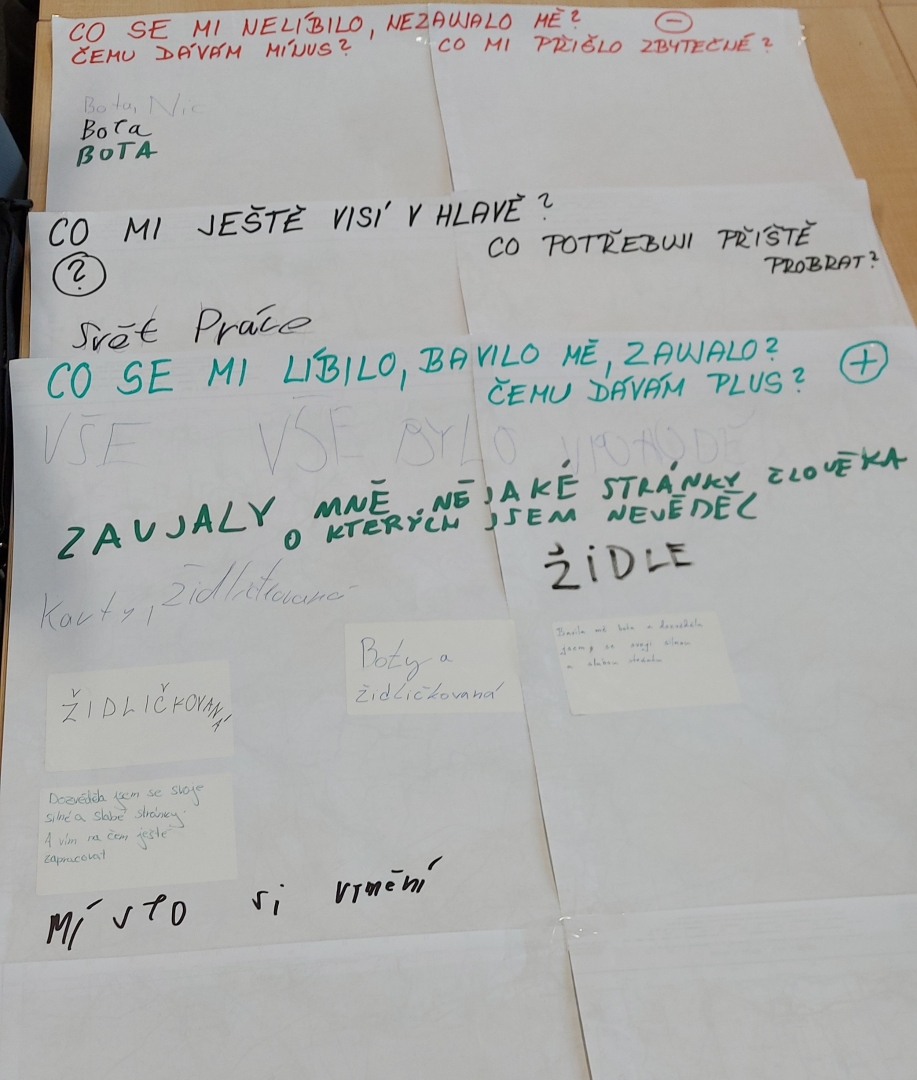 CO SE MI NELÍBILO, NEZAUJALO MĚ? ⊖
ČEMU DÁVÁM MÍNUS? CO MI PŘIŠLO ZBYTEČNÉ?
Bota, Nic
Bota
BOTA
CO MI JEŠTĚ VISÍ V HLAVĚ?
?
CO POTŘEBUJI PŘÍŠTĚ
PROBRAT?
Svět Práce
CO SE MI LÍBILO, BAVILO MĚ, ZAUJALO? +
ČEMU DÁVÁM PLUS?
VŠE VŠE BYLO V POHODĚ
ZAUJALY MNĚ NĚJAKÉ STRÁNKY ČLOVĚKA
O KTERÝCH JSEM NEVĚDĚL
ŽIDLE
Karty,
Boty a
židličkovaná
Bavila mě bota a dozvěděla
jsem se svoji silnou
a slabou stránku
ŽIDLIČKOVANÁ
Dozvěděla jsem se svoje
silné a slabé stránky.
A vím na čem ještě
zapracovat
Místo si vymění